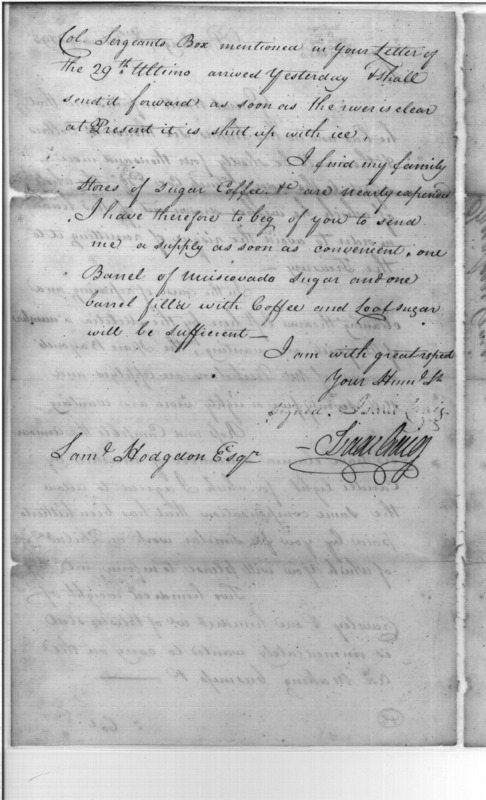 Col. Sergeants Box mentioned in Your Letter of
the 29th Ultimo arrived Yesterday & shall
send it forward as soon as the river is clear
at Present it is shut up with ice
I find my family
Stores of Sugar Coffee &c are nearly expended
I have therefore to beg of you to send
me a supply as soon as convenient. one
Barrel of Muscovado Sugar and one
barrel fill'd with Coffee and Loaf sugar
will be sufficient —
I am with great respect
Your Humd St
Signed. Isaac Craig
Isaac Craig
Saml Hodgdon Esqr